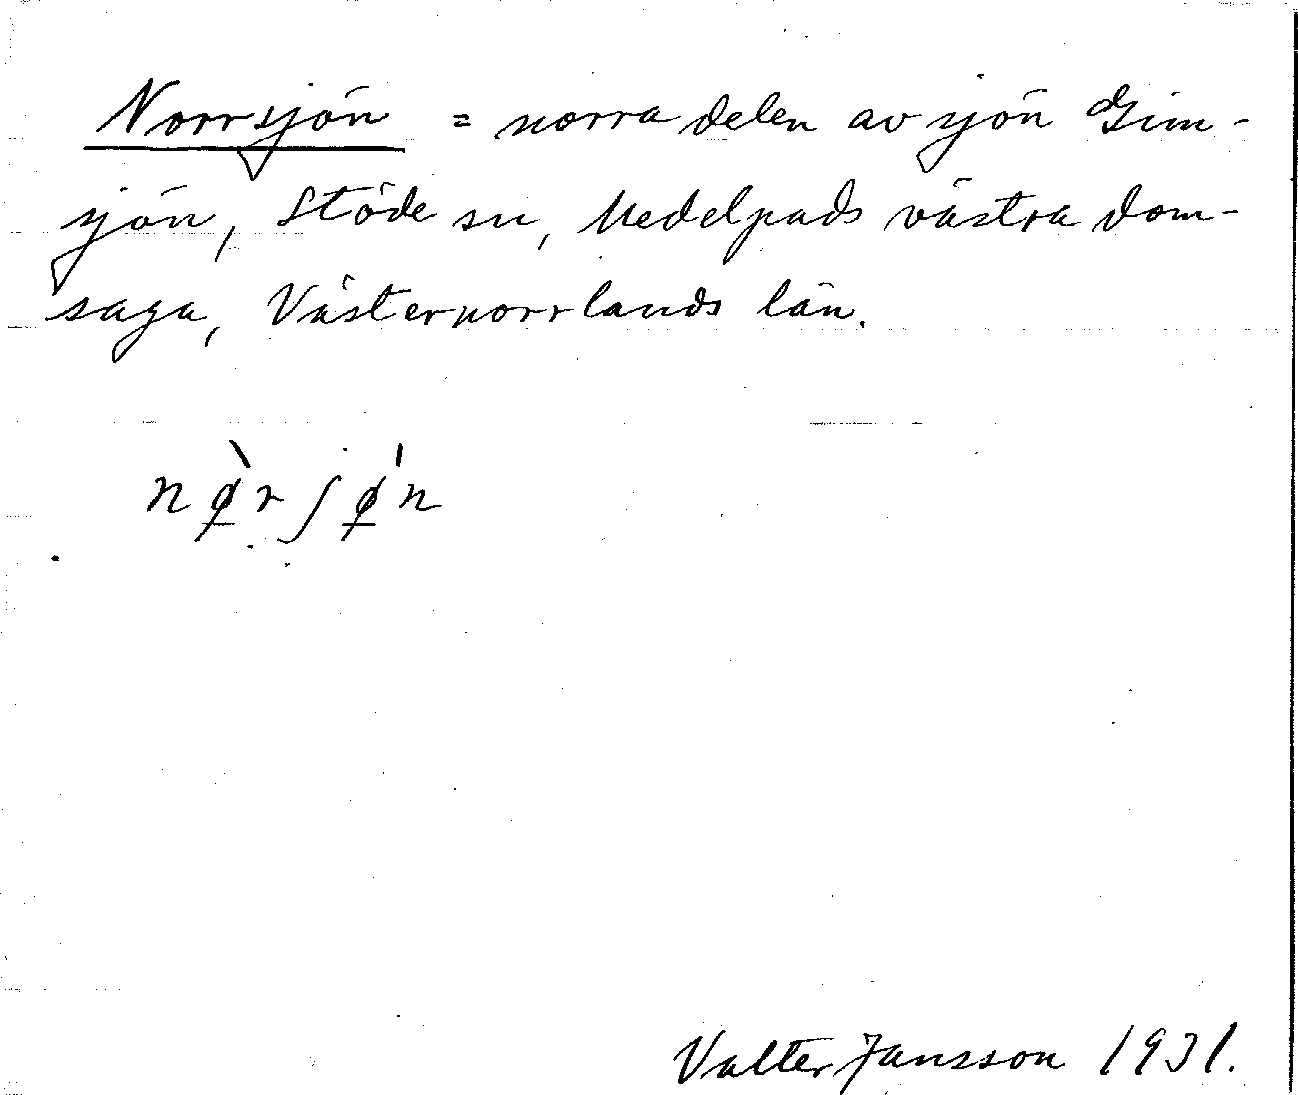 Norrsjön = norra delen av sjön Gim-
sjön, Stöde sn, Medelpads västra dom-
saga, Västernorrlands län.
nø̱̀rʃǿ̱n
Valter Jansson 1931.